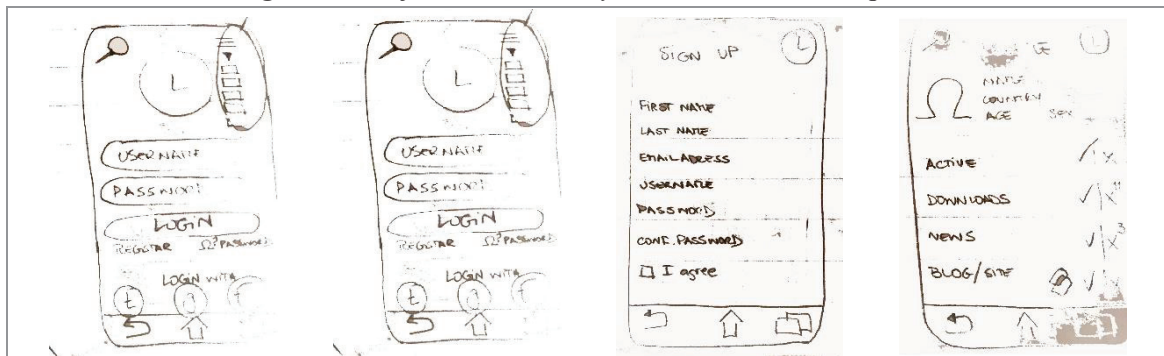 L
USERNAME
PASSWORD
LOGIN
REGISTAR PASSWORD
LOGIN WITH
t g f
L
USERNAME
PASSWORD
LOGIN
REGISTAR PASSWORD
LOGIN WITH
t g f
SIGN UP
L
FIRST NAME
LAST NAME
EMAIL ADDRESS
USERNAME
PASSWORD
CONF. PASSWORD
I agree
L
NAME
COUNTRY
AGE SEX
ACTIVE
DOWNLOADS
NEWS
BLOG/SITE